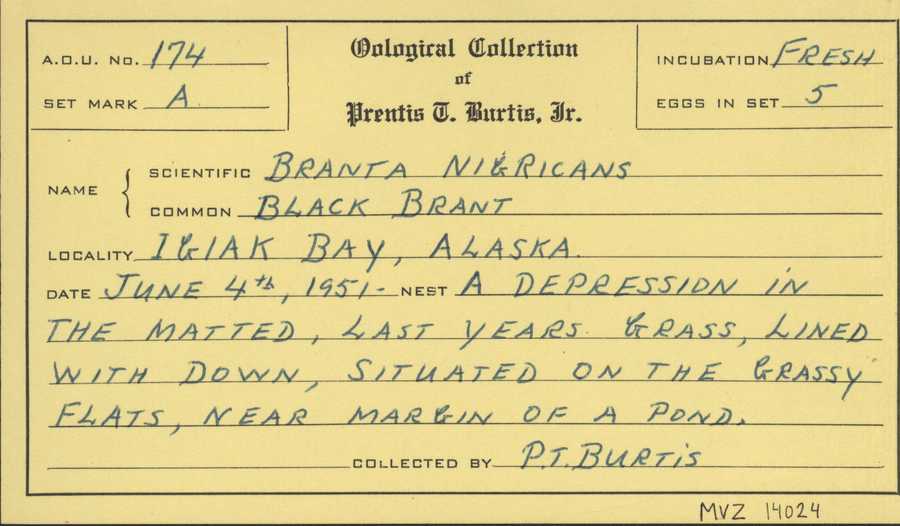 A.O.U. No. 174
SET MARK A
Oological Collection
of
Prentis T. Burtis, Jr.
INCUBATION FRESH
EGGS IN SET 5
NAME
SCIENTIFIC BRANTA NIGRICANS
COMMON BLACK BRANT
LOCALITY IGIAK BAY, ALASKA.
DATE JUNE 4th, 1951- NEST A DEPRESSION IN
THE MATTED, LAST YEARS GRASS, LINED
WITH DOWN, SITUATED ON THE GRASSY
FLATS, NEAR MARGIN OF A POND.
COLLECTED BY P.T. BURTIS
MVZ 14024